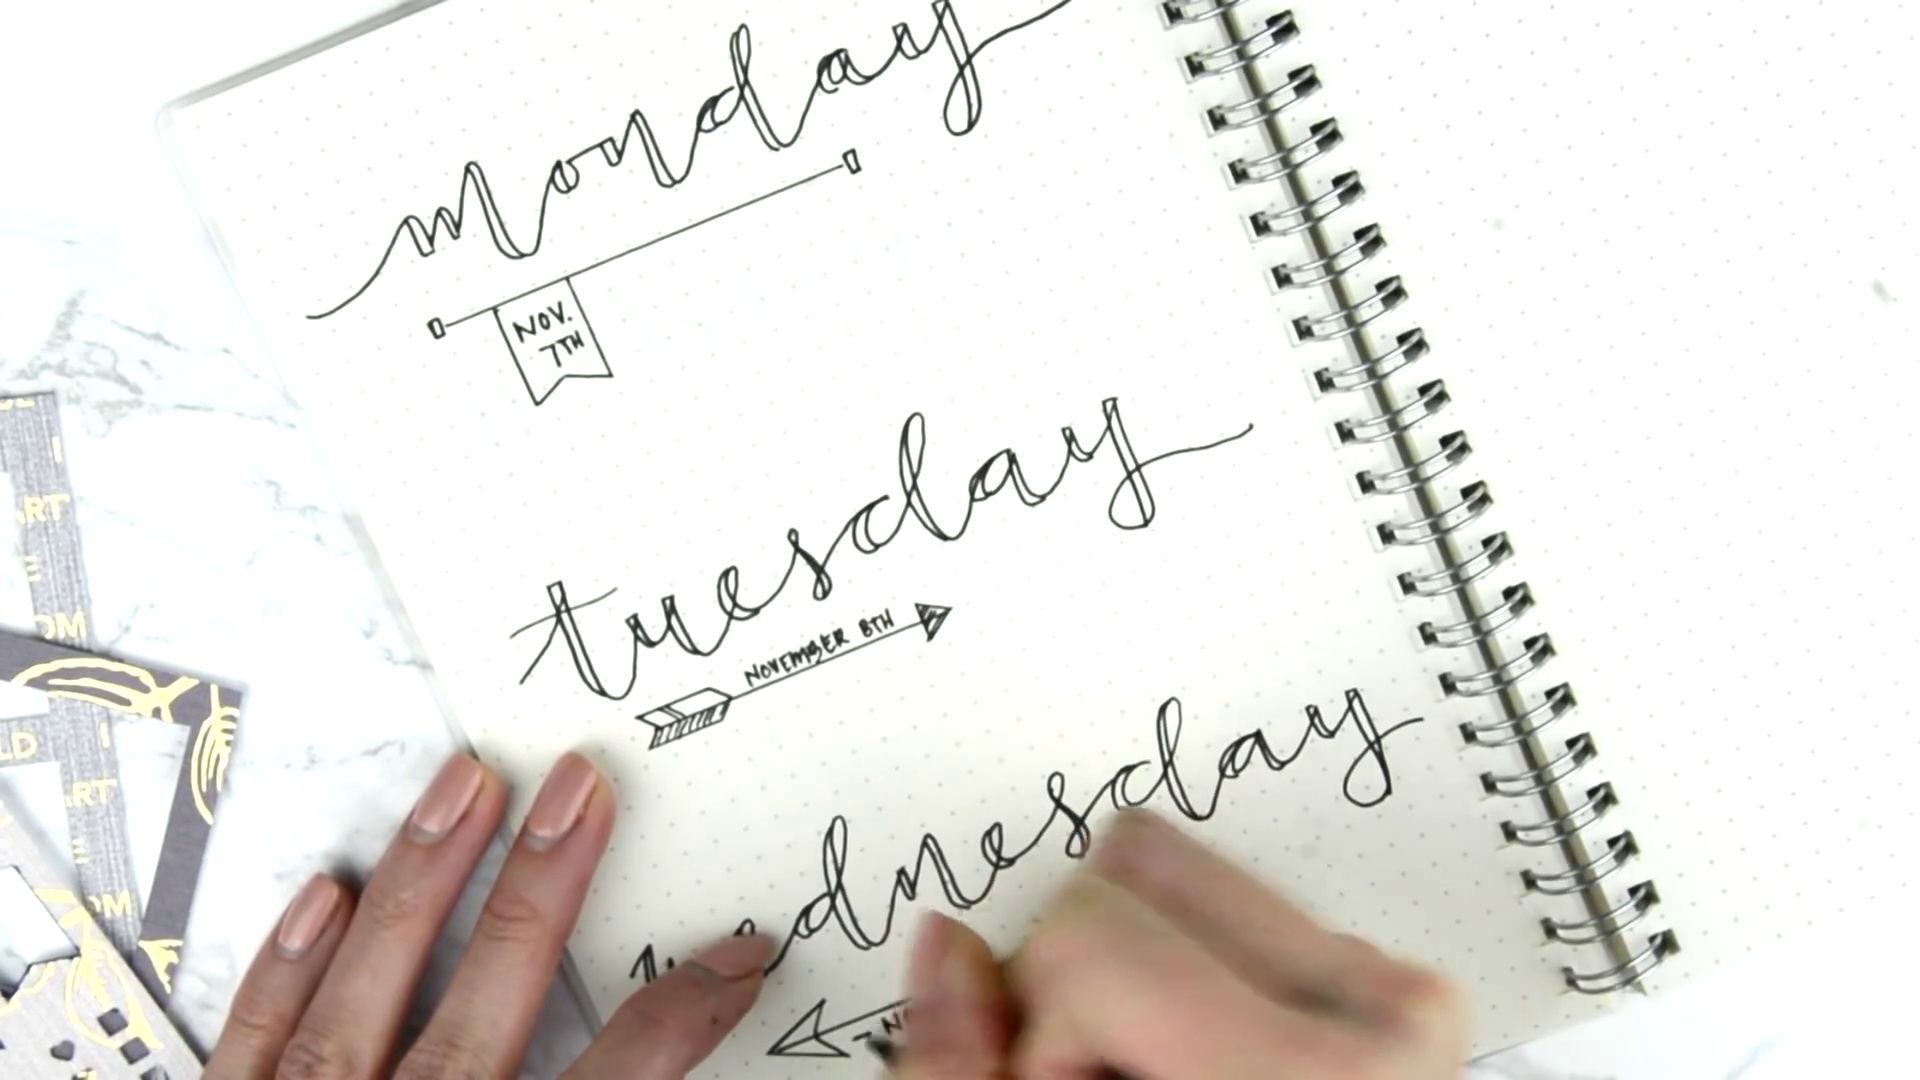 monday
NOV.
7TH
tuesday
NOVEMBER 8TH
wednesday
ART
E
OM
LD I
ART
E
OM